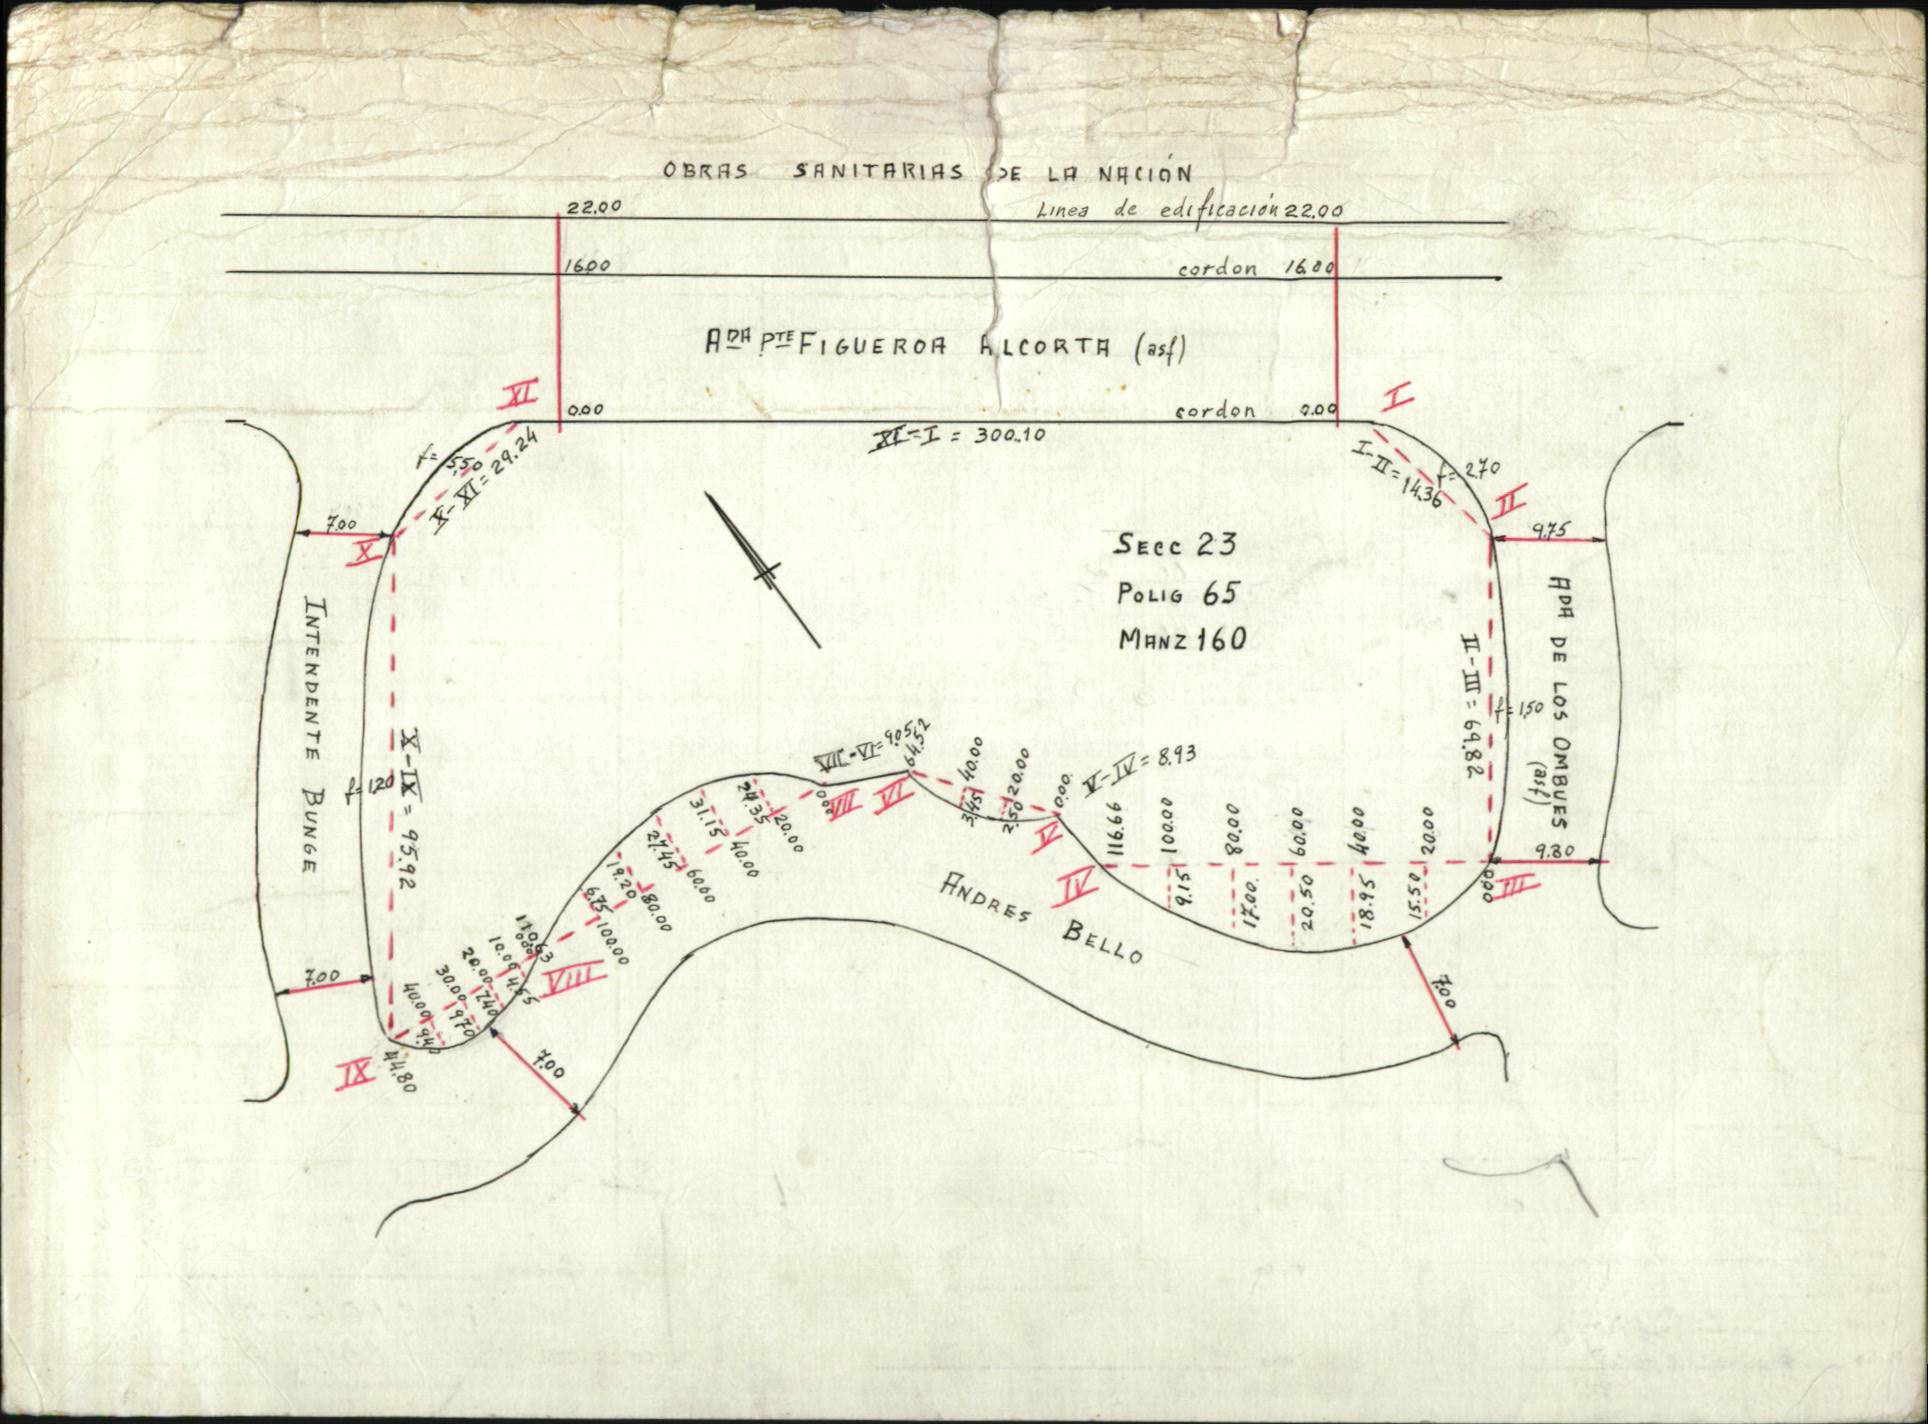 OBRAS SANITARIAS DE LA NACIÓN
22.00
Linea de edificación 22.00
16.00
cordon 16.00
ADA PTE FIGUEROA ALCORTA (asf)
XI
I
0.00
cordon 0.00
XI-I = 300.10
f= 5,50
X-XI = 29.24
I-II = 14.36
f= 2.70
II
7.00
X
9.75
SECC 23
POLIG 65
MANZ 160
INTENDENTE BUNGE
ADA DE LOS OMBUES
(asf)
II-III = 69.82
f= 1,50
X-IX = 95.92
f= 1.20
VII-VI = 9.05
64.52
40.00
20.00
0.00
3.45
2.50
V-IV = 8.93
VII
VI
V
IV
III
116.66
100.00
80.00
60.00
40.00
20.00
0.00
9.15
17.00
20.50
18.95
15.50
9.80
0.00
24.35
20.00
31.15
40.00
27.45
60.00
19.20
80.00
6.75
100.00
110.63
0.00
VIII
10.06
4.55
20.00
7.40
30.00
9.70
40.00
9.40
44.80
IX
7.00
ANDRES BELLO
7.00
7.00